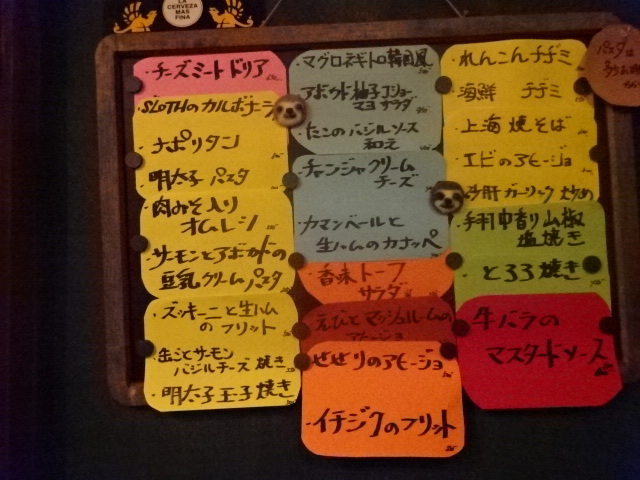 LA
CERVEZA
MAS
FINA
・チーズミートドリア
・SLOTHのカルボナーラ
・ナポリタン
・明太子パスタ
・肉みそ入り
オムレツ
・サーモンとアボカドの
豆乳クリームパスタ
・ズッキーニと生ハム
のフリット
・缶ごとサーモン
バジルチーズ焼き
・明太子玉子焼き
・マグロネギトロ韓国風
・アボカド柚子コショー
マヨサラダ
・たこのバジルソース
和え
・チャンジャクリーム
チーズ
・カマンベールと
生ハムのカナッペ
・香味トーフ
サラダ
・えびとマッシュルームの
アヒージョ
・せせりのアヒージョ
・イチジクのフリット
・れんこんチヂミ
・海鮮チヂミ
・上海焼そば
・エビのアヒージョ
・砂肝ガーリック炒め
・手羽中香り山椒
塩焼き
・とろろ焼き
・牛バラの
マスタードソース
パスタ